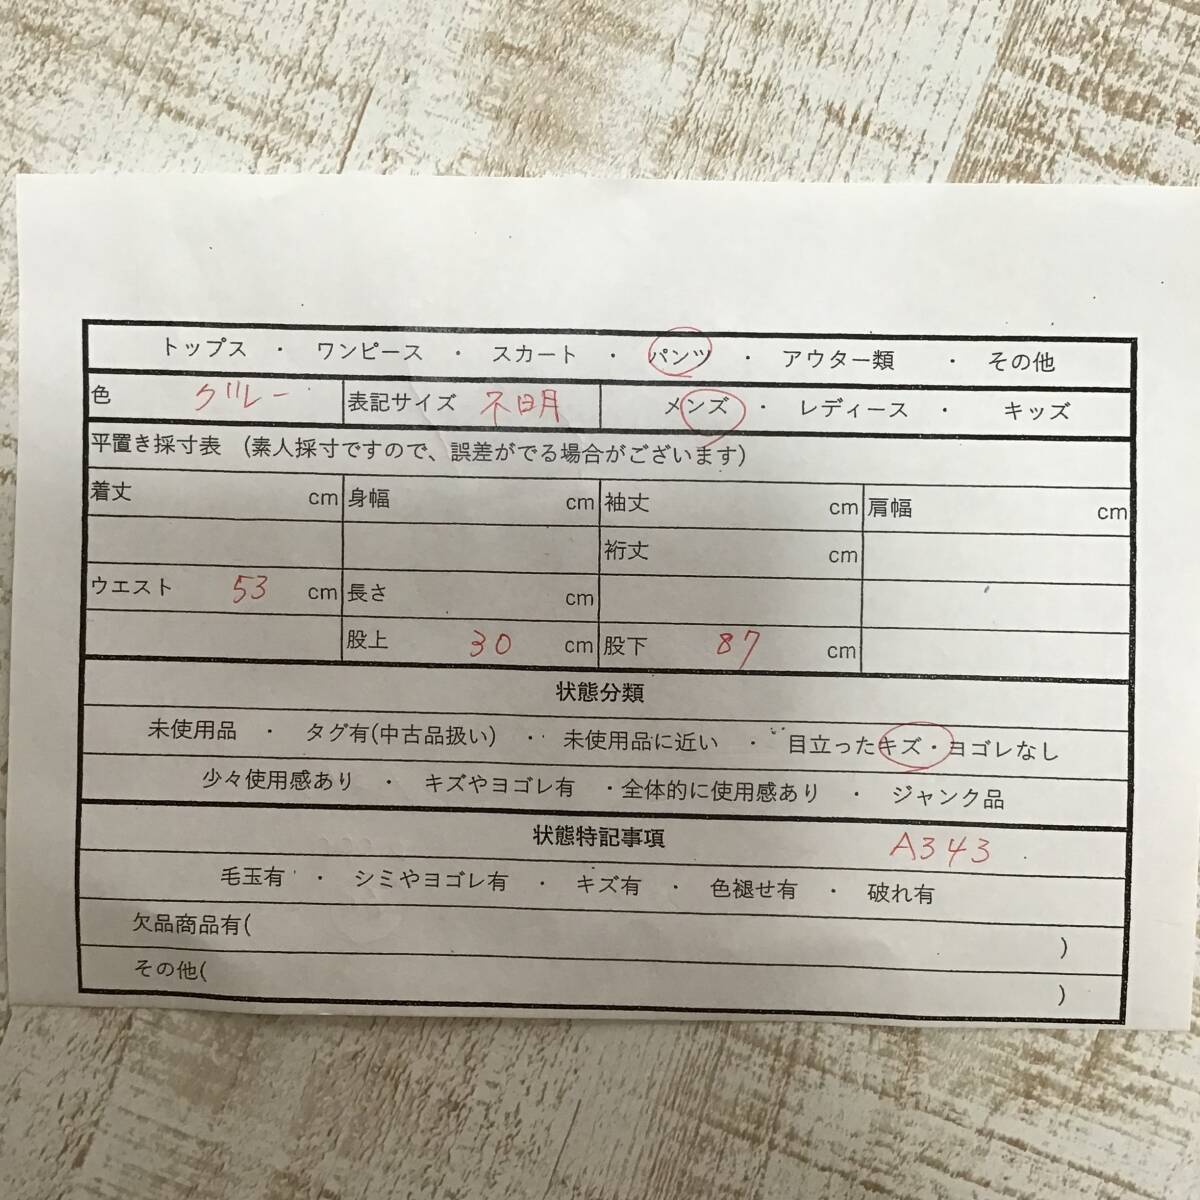 トップス ・ ワンピース ・ スカート ・ パンツ ・ アウター類 ・ その他
色 グレー 表記サイズ 不明 メンズ ・ レディース ・ キッズ
平置き採寸表 (素人採寸ですので、誤差がでる場合がございます)
着丈 cm 身幅 cm 袖丈 cm 肩幅 cm
裄丈 cm
ウエスト 53 cm 長さ cm
股上 30 cm 股下 87 cm
状態分類
未使用品 ・ タグ有(中古品扱い) ・ 未使用品に近い ・ 目立ったキズ・ヨゴレなし
少々使用感あり ・ キズやヨゴレ有 ・全体的に使用感あり ・ ジャンク品
状態特記事項 A343
毛玉有 ・ シミやヨゴレ有 ・ キズ有 ・ 色褪せ有 ・ 破れ有
欠品商品有( )
その他( )